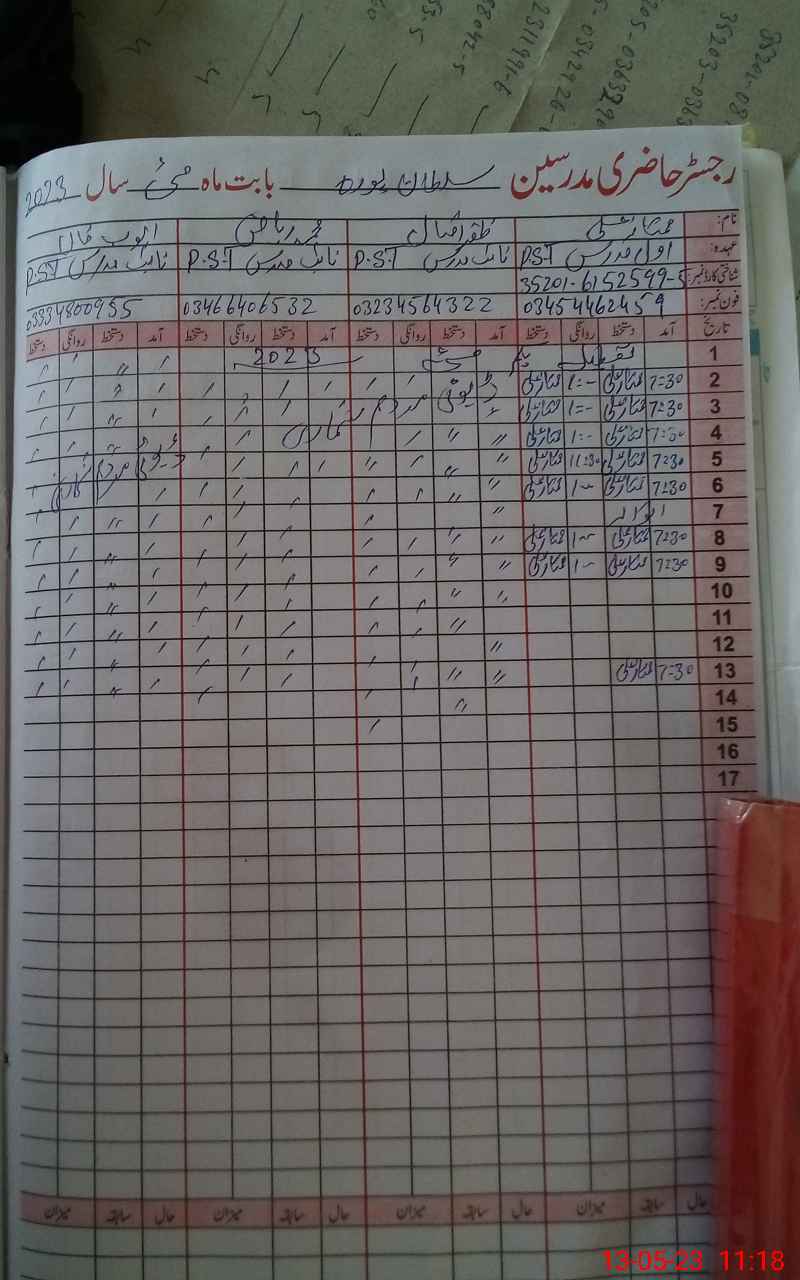 رجسٹر حاضری مدرسین سلطان پورہ بابت ماہ مئی سال 2023
نام: ممتاز علی ظفر اقبال محمد ریاض
عہدہ: اول مدرس P.S.T نائب مدرس P.S.T نائب مدرس P.S.T نائب مدرس P.S.T
شناختی کارڈ نمبر: 35201-6152599-5
فون نمبر: 03454462459 03234564322 03466406532 03334800955
تاریخ آمد دستخط روانگی دستخط آمد دستخط روانگی دستخط آمد دستخط روانگی دستخط آمد دستخط روانگی دستخط
1 تعطیل یکم مئی 2023
2 7=30 ممتاز علی 1=- ممتاز علی ڈیوٹی مردم شماری
3 7=30 ممتاز علی 1=- ممتاز علی
4 7=30 ممتاز علی 1=- ممتاز علی
5 7=30 ممتاز علی 11=30 ممتاز علی ڈیوٹی مردم شماری
6 7=30 ممتاز علی 1-- ممتاز علی
7 اتوار
8 7=30 ممتاز علی 1-- ممتاز علی
9 7=30 ممتاز علی 1-- ممتاز علی
10
11
12
13 7=30 ممتاز علی
14
15
16
17
حال سابقہ میزان حال سابقہ میزان حال سابقہ میزان حال سابقہ میزان
13-05-23 11:18